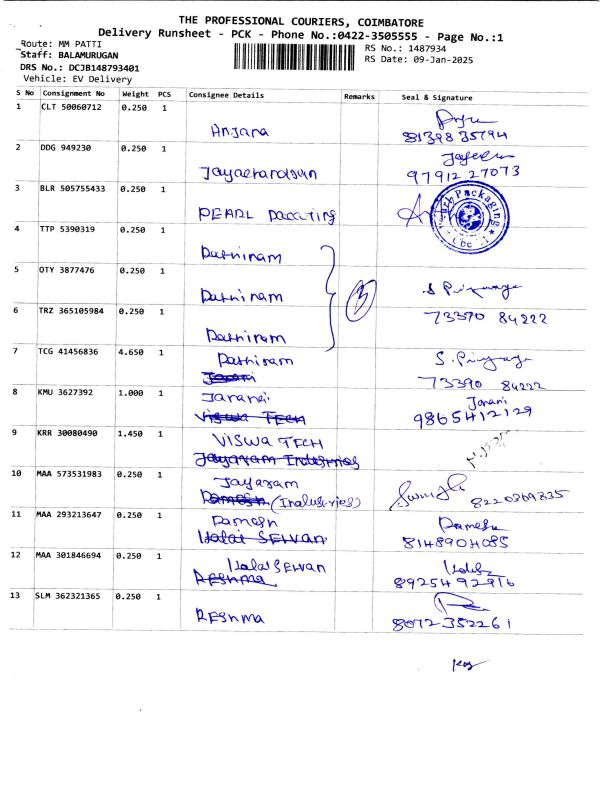 THE PROFESSIONAL COURIERS, COIMBATORE
Delivery Runsheet - PCK - Phone No.:0422-3505555 - Page No.:1
Route: MM PATTI RS No.: 1487934
Staff: BALAMURUGAN RS Date: 09-Jan-2025
DRS No.: DCJB148793401
Vehicle: EV Delivery
S No Consignment No Weight PCS Consignee Details Remarks Seal & Signature
1 CLT 50060712 0.250 1
Anjana 81398 35794
2 DDG 949230 0.250 1
97912 27073
3 BLR 505755433 0.250 1
PEARL
4 TTP 5390319 0.250 1
Pathiram
5 OTY 3877476 0.250 1
Pathiram 3 S Priyanga
6 TRZ 365105984 0.250 1 73390 84222
Pathiram
7 TCG 41456836 4.650 1
Pathiram S. Priyanga
73390 84222
8 KMU 3627392 1.000 1
Janani Janani
Viswa TECH 9865412129
9 KRR 30080490 1.450 1
VISWA TECH
Jayaram Industries
10 MAA 573531983 0.250 1
Jayaram
Ramesh (Industries) 8220369835
11 MAA 293213647 0.250 1
Ramesh Ramesh
SELVAN 8148904085
12 MAA 301846694 0.250 1
SELVAN
RESHMA 8925492916
13 SLM 362321365 0.250 1
RESHMA 8072352261